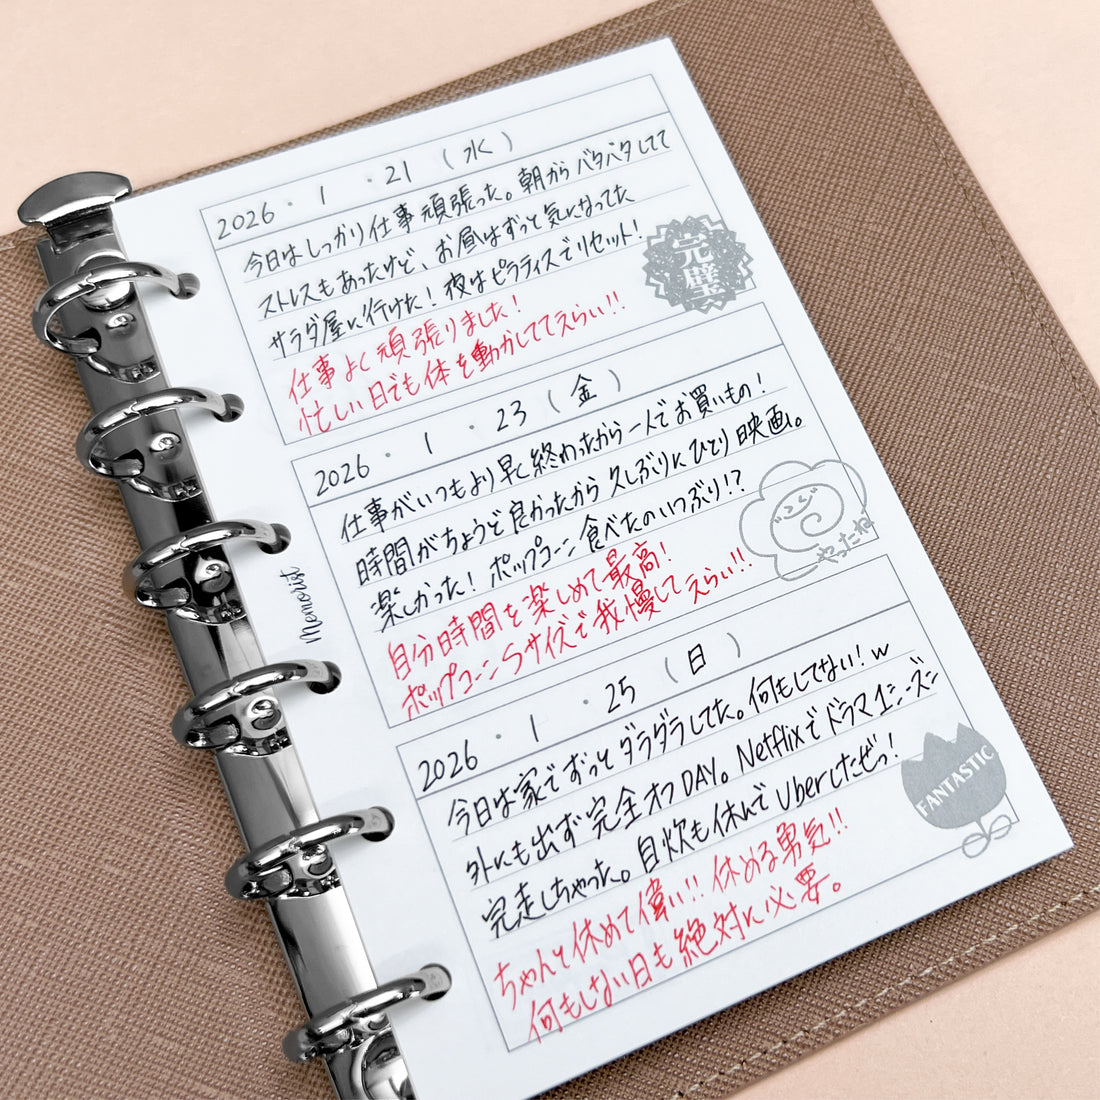 2026・1・21（水）
今日はしっかり仕事頑張った。朝からバタバタしてて
ストレスもあったけど、お昼はずっと気になってた
サラダ屋に行けた！夜はピラティスでリセット！
仕事よく頑張りました！
忙しい日でも体を動かしててえらい!!
完璧
2026・1・23（金）
仕事がいつもより早く終わったから一人でお買いもの！
時間がちょうど良かったから久しぶりにひとり映画。
楽しかった！ポップコーン食べたのいつぶり!?
自分時間を楽しめて最高！
ポップコーンSサイズで我慢してえらい!!
やったね
Memorist
2026・1・25（日）
今日は家でずっとダラダラしてた。何もしてない！w
外にも出ず完全オフDAY。Netflixでドラマ1シーズン
完走しちゃった。自炊も休んでUberしたぜっ！
ちゃんと休めて偉い!!休める勇気!!
何もしない日も絶対に必要。
FANTASTIC